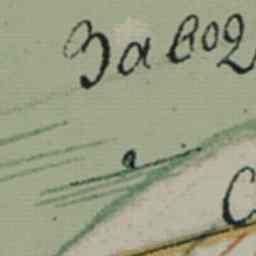 Завод
а
С